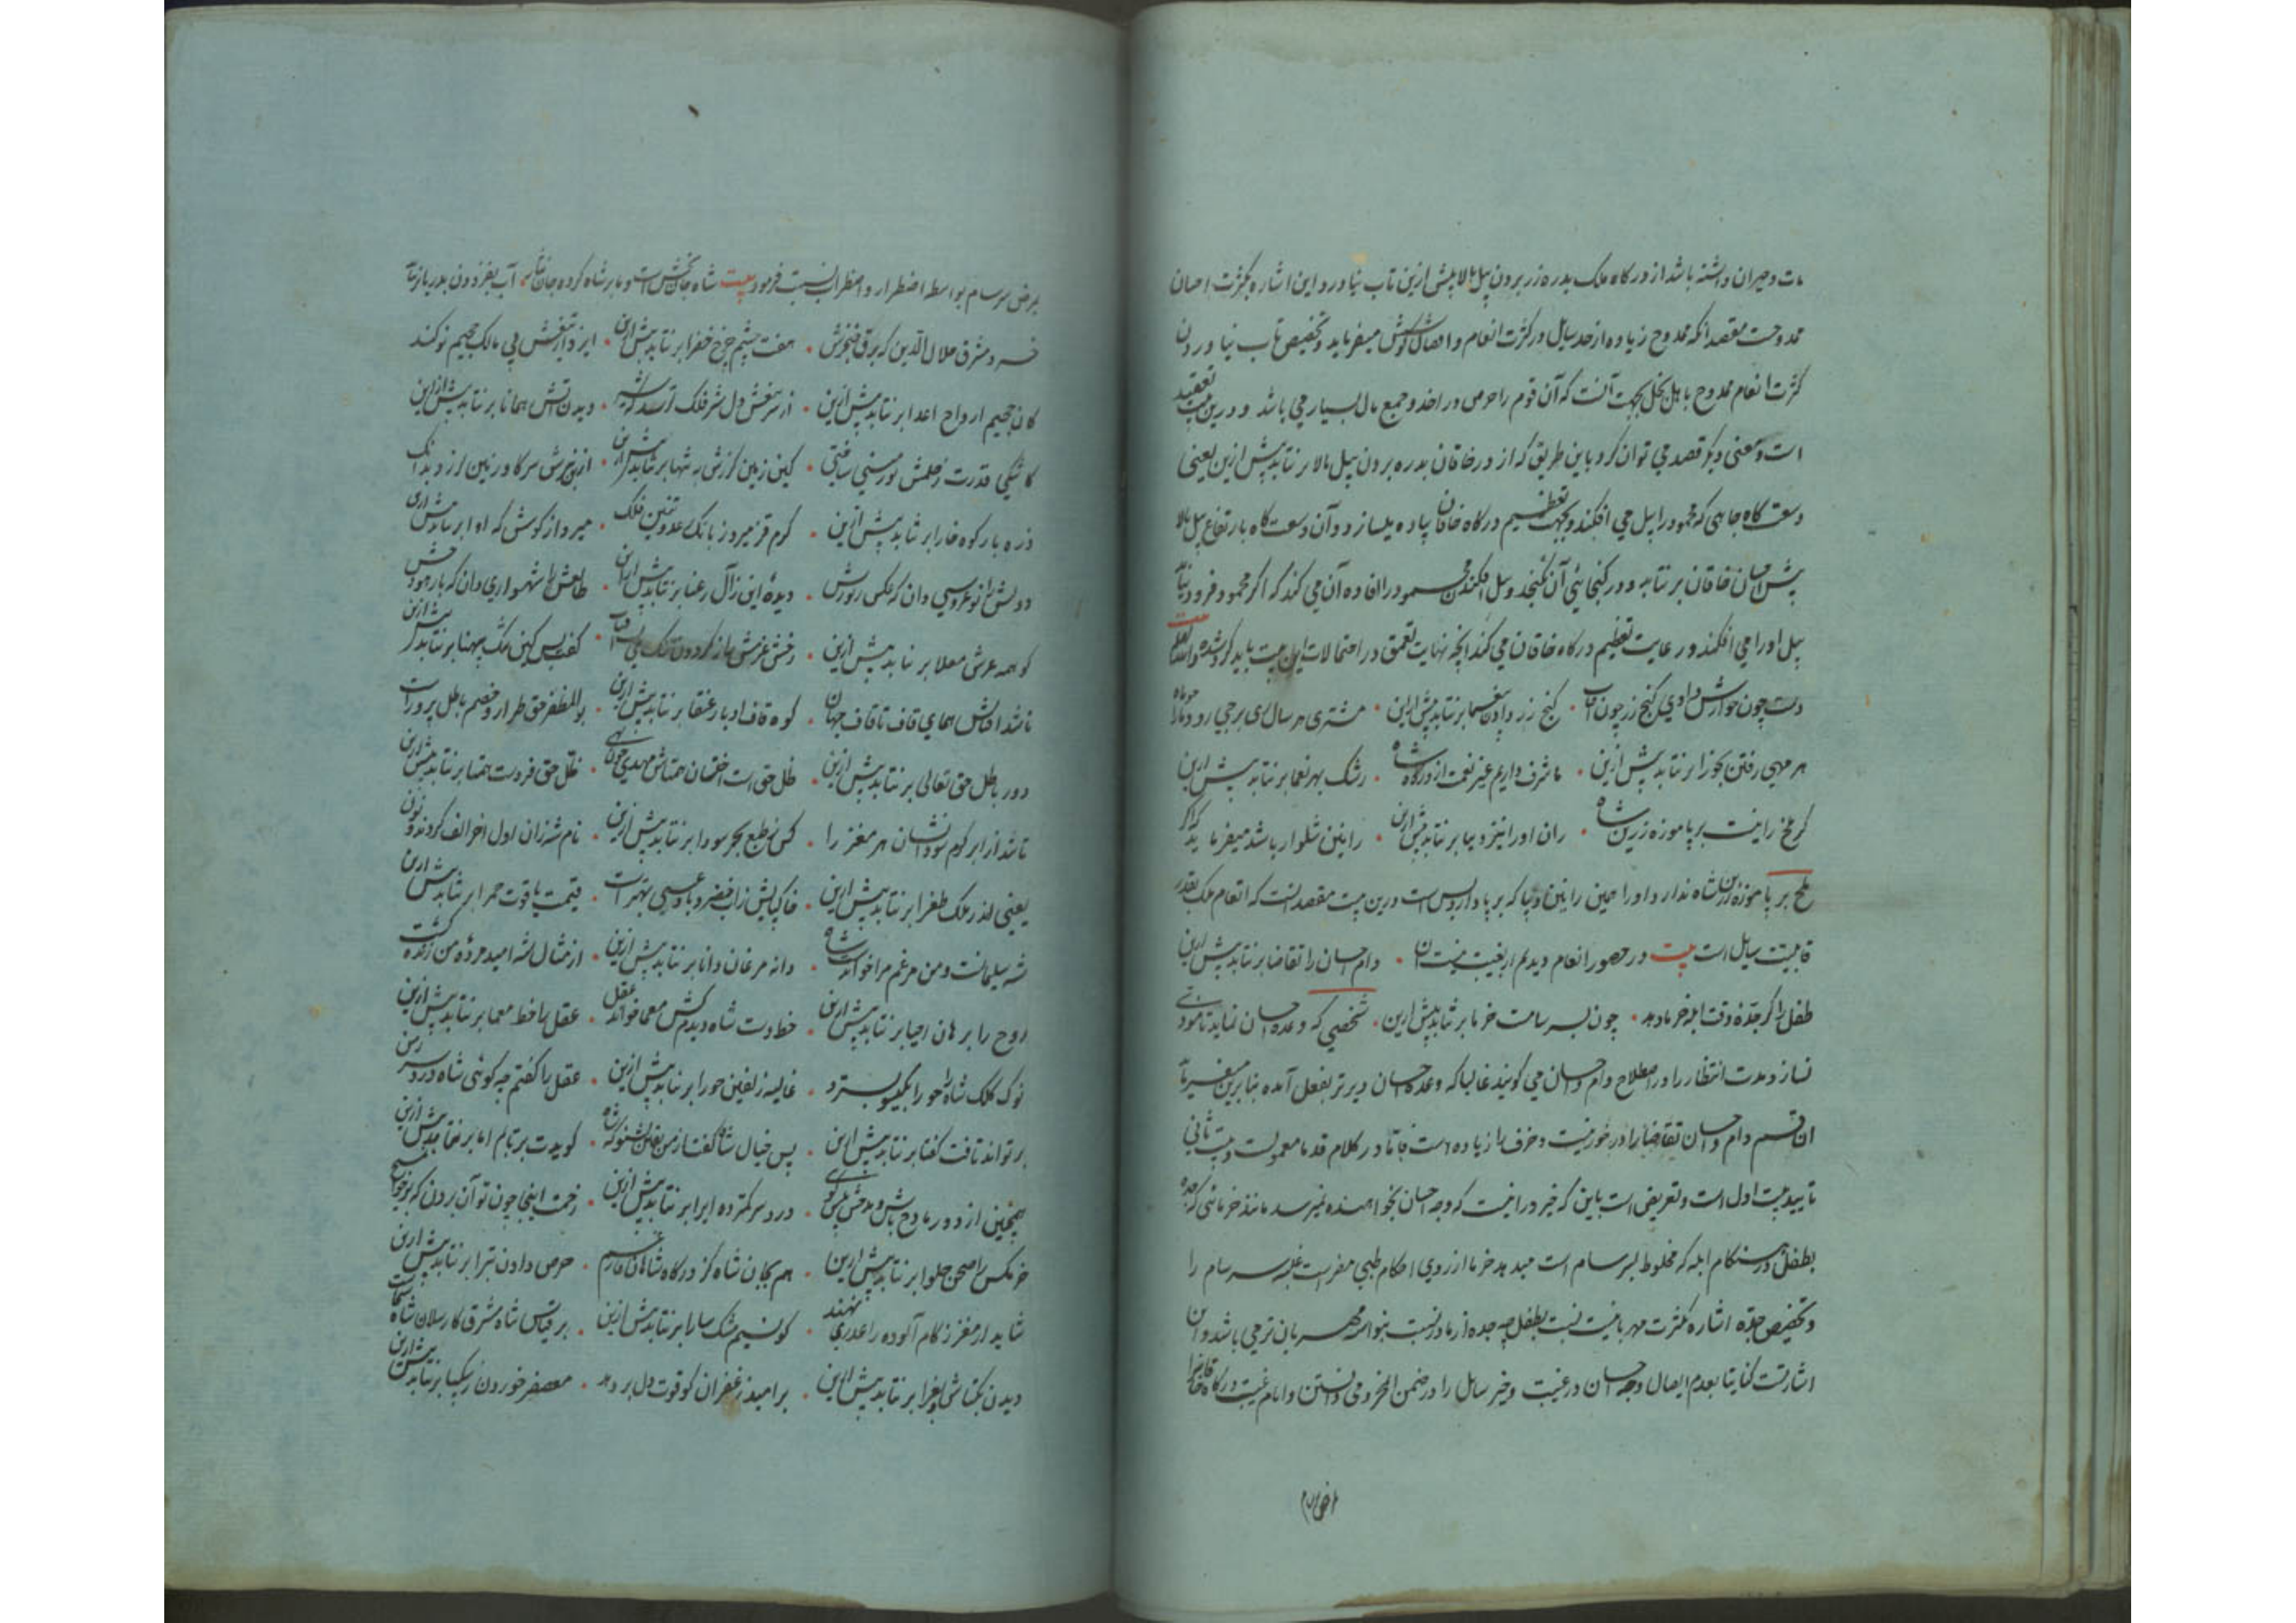 مات و حیران داشته باشد از درگاه ملک بدره زر بردن پیل بالا پیش ازین تاب نیاورد و این اشاره بکثرت احسان
ممدوحست مقصد آنکه ممدوح زیاده از حد سایل در کثرت انعام و افضال کوشش میفرماید و تخصیص تاب نیاوردن
کثرت انعام ممدوح با اهل بخل بجهت آنست که آن قوم را حرص در اخذ و جمع مال بسیار می باشد و درین بیت تعقید
است و معنی دیگر قصد می توان کرد باین طریق که از در خاقان بدره بردن پیل بالا بر نتابد پیش ازین یعنی
وسعت گاه جاهی که محمود را پیل می افکند و بجهت تعظیم درگاه خاقان پیاده میسازد و آن وسعت گاه بارتفاع پیل بالا
پیش احسان خاقان بر نتابد و در گنجایی آن نگنجد و پیل افکندن محمود را افاده آن می کند که اگر محمود فرود نیاید
پیل او را می افکند و رعایت تعظیم درگاه خاقان می کند آنچه نهایت تعمق در احتمالات این بیت باید کرد شد والله اعلم
دست چون جوزاش دادی گنج زر چون آفتاب • گنج زر دادن بیغما بر نتابد پیش ازین • مشتری هر سال زی برجی رود ما را چو ماه
هر مهی رفتن بجوزا بر نتابد پیش ازین • ما شرف داریم غیر نعمت از درگاه شاه • رشک بهر نعما بر نتابد پیش ازین
گر ملخ را نیست بر پا موزه زرین شاه • ران او رانین دیبا بر نتابد پیش ازین • رانین شلوار باشد میفرماید که اگر
ملخ بر پا موزه زرین شاه ندارد او را همین رانین دیبا که بر پا دارد بس است درین بیت مقصد آنست که انعام ملک بقدر
قابلیت سایل است بیت در حضور انعام دیدم اربغیبت نیست آن • وام احسان را تقاضا بر نتابد پیش ازین
طفل را گر جده وقت آبله خرما دهد • چون بسرسامست خرما بر نتابد پیش ازین • شخصی که وعده احسان نماید تا مودی
نسازد مدت انتظار را در اصطلاح وام احسان می گویند غالبا که وعده احسان دیرتر بفعل آمده بنابرین میفرماید
این قسم وام احسان تقاضا را درخور نیست و حرف را زیاده است فاما در کلام قدما معمولست و بیت ثانی
تایید بیت اول است و تعریض است باین که خیر در انیست که وجه احسان بخواهنده نمیرسد مانند خرمائی که جده
بطفل در هنگام آبله که مخلوط بسرسام است میدهد خرما از روی احکام طبی مضر است غلبه سرسام را
و تخصیص جده اشاره بکثرت مهربانیست نسبت بطفل چه جده از مادر نسبت بنواده مهربان تر می باشد و این
اشارتست کنایتا بعدم ایصال وجه احسان در غیبت و خیر سایل را در ضمن محرومی دانستن و ایام غیبت درگاه تقاضا را
بمرض سرسام بواسطه اضطرار و اضطراب نسبت فرمود بیت شاه جان بخش است و ما بر شاه کرده جان نثار • آب بفزودن بدریا بر نتابد
خسرو مشرق جلال الدین که برق خنجرش • هفت چشم چرخ خضرا بر نتابد پیش ازین • ایزد از تیغش پی مالک جحیم نو کند
کان جحیم ارواح اعدا بر نتابد پیش ازین • از سر تیغش دل شیر فلک ترسد • دیدن آتش همانا بر نتابد پیش ازین
کاشکی قدرت ز حلمش نو زمینی ساختی • کین زمین گرزش به تنها بر نتابد پیش ازین • از نهیبش سر گاو زمین لرزد بدانک
ذره بار کوه خارا بر نتابد پیش ازین • کرم قز میرد ز بانگ رعد و تنین فلک • میرد از کوسش که آوا بر نتابد پیش ازین
دولتش را نو عروسی دان که عکس زیورش • دیده این زال رعنا بر نتابد پیش ازین • طالعش را شهسواری دان که بار هودجش
کوهه عرش معلا بر نتابد پیش ازین • رخش عزمش باز گردون تنگ • گفت بس کین تنگ پهنا بر نتابد پیش ازین
تا شد اقبالش همای قاف تا قاف جهان • کوه قاف ادبار عنقا بر نتابد پیش ازین • بوالمظفر حق طراز و خصم باطل پرور است
دور باطل حق تعالی بر نتابد پیش ازین • ظل حق است اخستان همتاش مهدی چون نهی • ظل حق فرد است همتا بر نتابد پیش ازین
تا شد از ابر کرم سودا نشان هر مغز را • کس ز طبع بحر سودا بر نتابد پیش ازین • نام شه زان اول و آخر الف کردند و نون
یعنی اندر ملک طغرا بر نتابد پیش ازین • خاک پایش ز آب خضر و باد عیسی بهتر است • قیمت یاقوت حمرا بر نتابد پیش ازین
شه سلیمانست و من مرغم مرا خوانده است شاه • دانه مرغان دانا بر نتابد پیش ازین • از مثال شه امید مرده من زنده گشت
روح را برهان احیا بر نتابد پیش ازین • خط دست شاه دیدم کش معما خوانده عقل • عقل را خط معما بر نتابد پیش ازین
نوک کلک شاه را حورا بگیسو بسترد • غالیه زلفین حورا بر نتابد پیش ازین • عقل را گفتم چه گوئی شاه درد سر ز من
بر تواند تافت گفتا بر نتابد پیش ازین • پس خیال شاه گفتا از من بشنو که شاه • گویدت بر تابم اما بر نتابد پیش ازین
همچنین از دور مادح باش و مدحش می نویس • درد سر کمتر ده ایرا بر نتابد پیش ازین • زحمت اینجا چون توان بردن که بر خوان مسیح
خرمگس را صحن حلوا بر نتابد پیش ازین • هم بجان شاه کز درگاه شاهان فارغم • حرص دادن تبرا بر نتابد پیش ازین
شاید ار مغز زکام آلوده را عذری نهند • کو نسیم مشک سارا بر نتابد پیش ازین • بر قیاس شاه مشرق کارسلان شاه
دیدن بکتاش و بغرا بر نتابد پیش ازین • بر امید زعفران کو قوت دل بر دهد • معصفر خوردن بسکبا بر نتابد پیش ازین